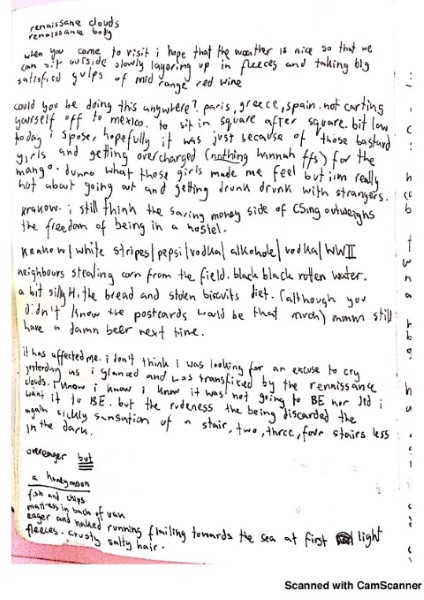 renaissance clouds
renaissance body
when you come to visit i hope that the weather is nice so that we
can sit outside slowly layering up in fleeces and taking big
satisfied gulps of mid range red wine
could you be doing this anywhere? paris, greece, spain. not carting
yourself off to mexico. to sit in square after square. bit low
today i spose, hopefully it was just because of those bastard
girls and getting overcharged (nothing hannah ffs) for the
mango. dunno what those girls made me feel but im really
not about going out and getting drunk drunk with strangers.
krakow. i still think the saving money side of CSing outweighs
the freedom of being in a hostel.
krakow/white stripes/pepsi/vodka/alkohole/vodka/WWII
neighbours stealing corn from the field. black black rotten water.
a bit silly H, the bread and stolen biscuits diet. (although you
didn't know the postcards would be that much) mmm still
have a damn beer next time.
it has affected me. i don't think i was looking for an excuse to cry
yesterday as i glanced and was transfixed by the renaissance
clouds. i know i know i know it was not going to BE nor did i
want it to BE. but the rudeness the being discarded the
again sickly sensation of a stair, two, three, four stairs less
in the dark.
overeager but
a honeymoon
fish and chips
mattress in back of van
eager and naked running flailing towards the sea at first light
fleeces. crusty salty hair.
Scanned with CamScanner